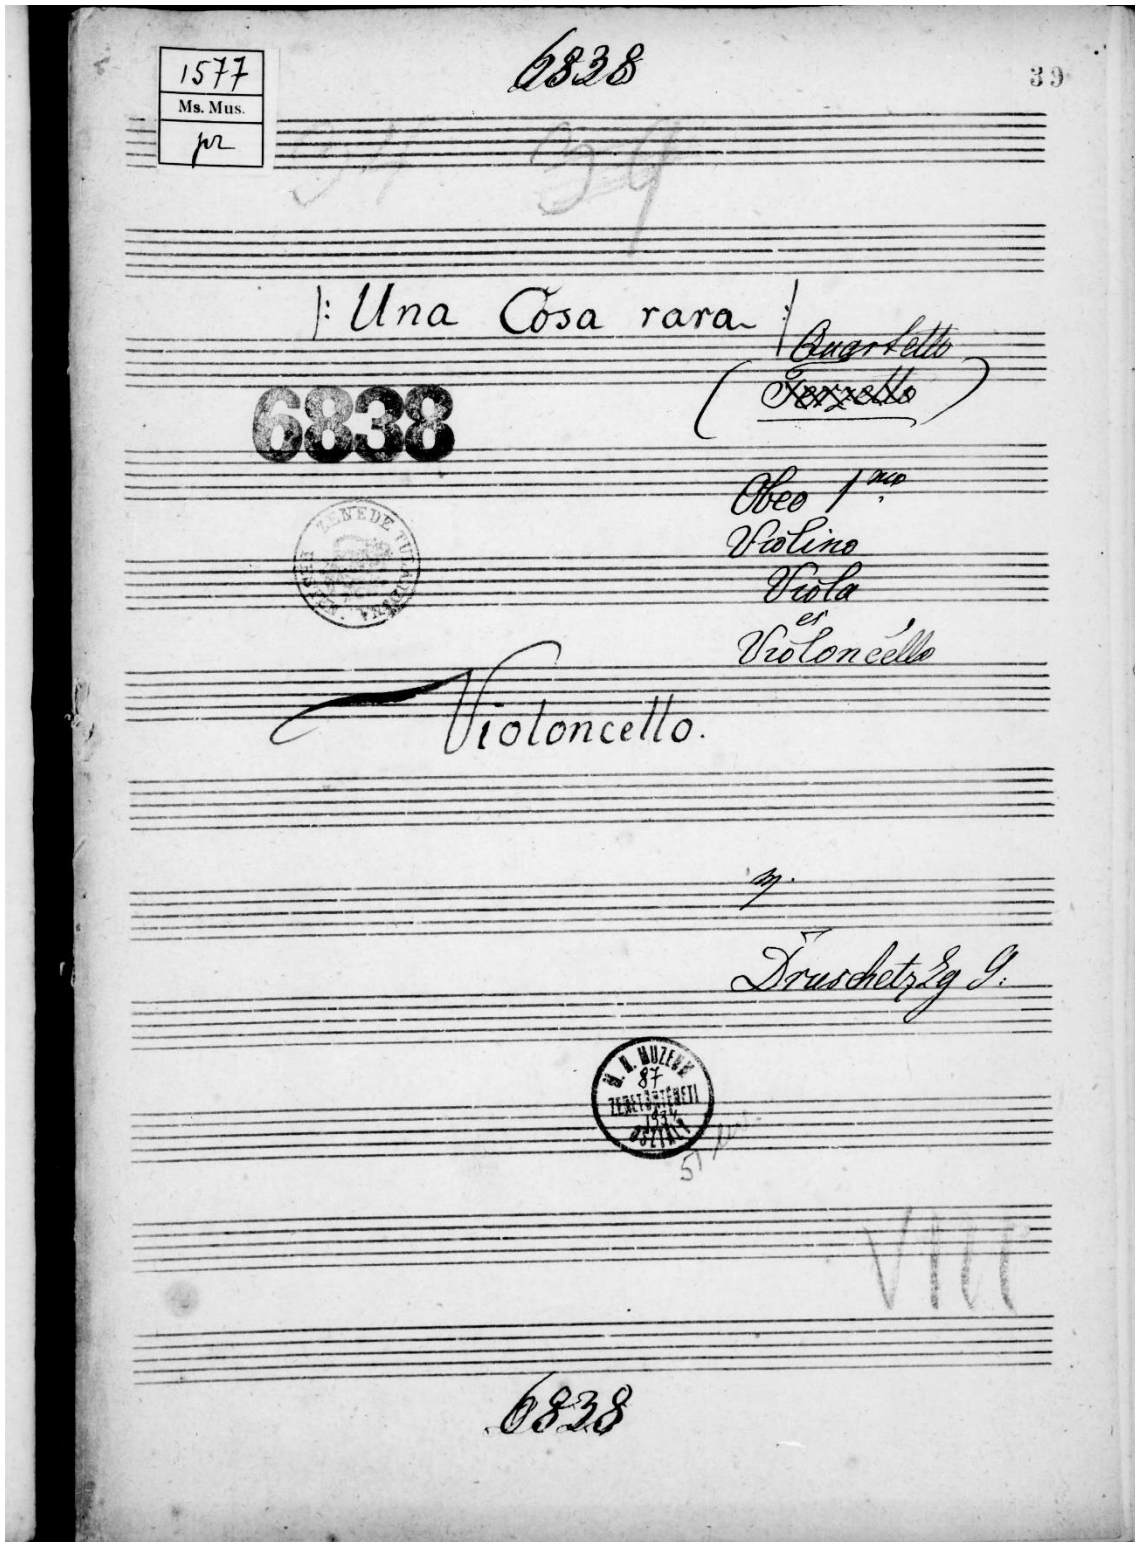 6838
39
1577
Ms. Mus.
pr
34 39
|: Una Cosa rara :|
Quartetto
(Terzetto)
6838
Oboo 1mo
Violino
Viola
et
Violoncello
ZENEDE TULAJDONA
Violoncello.
Druschetzky G:
M. N. MUZEUM
87
ZENETÖRTÉNETI
1934
OSZTÁLY
VIII
6838